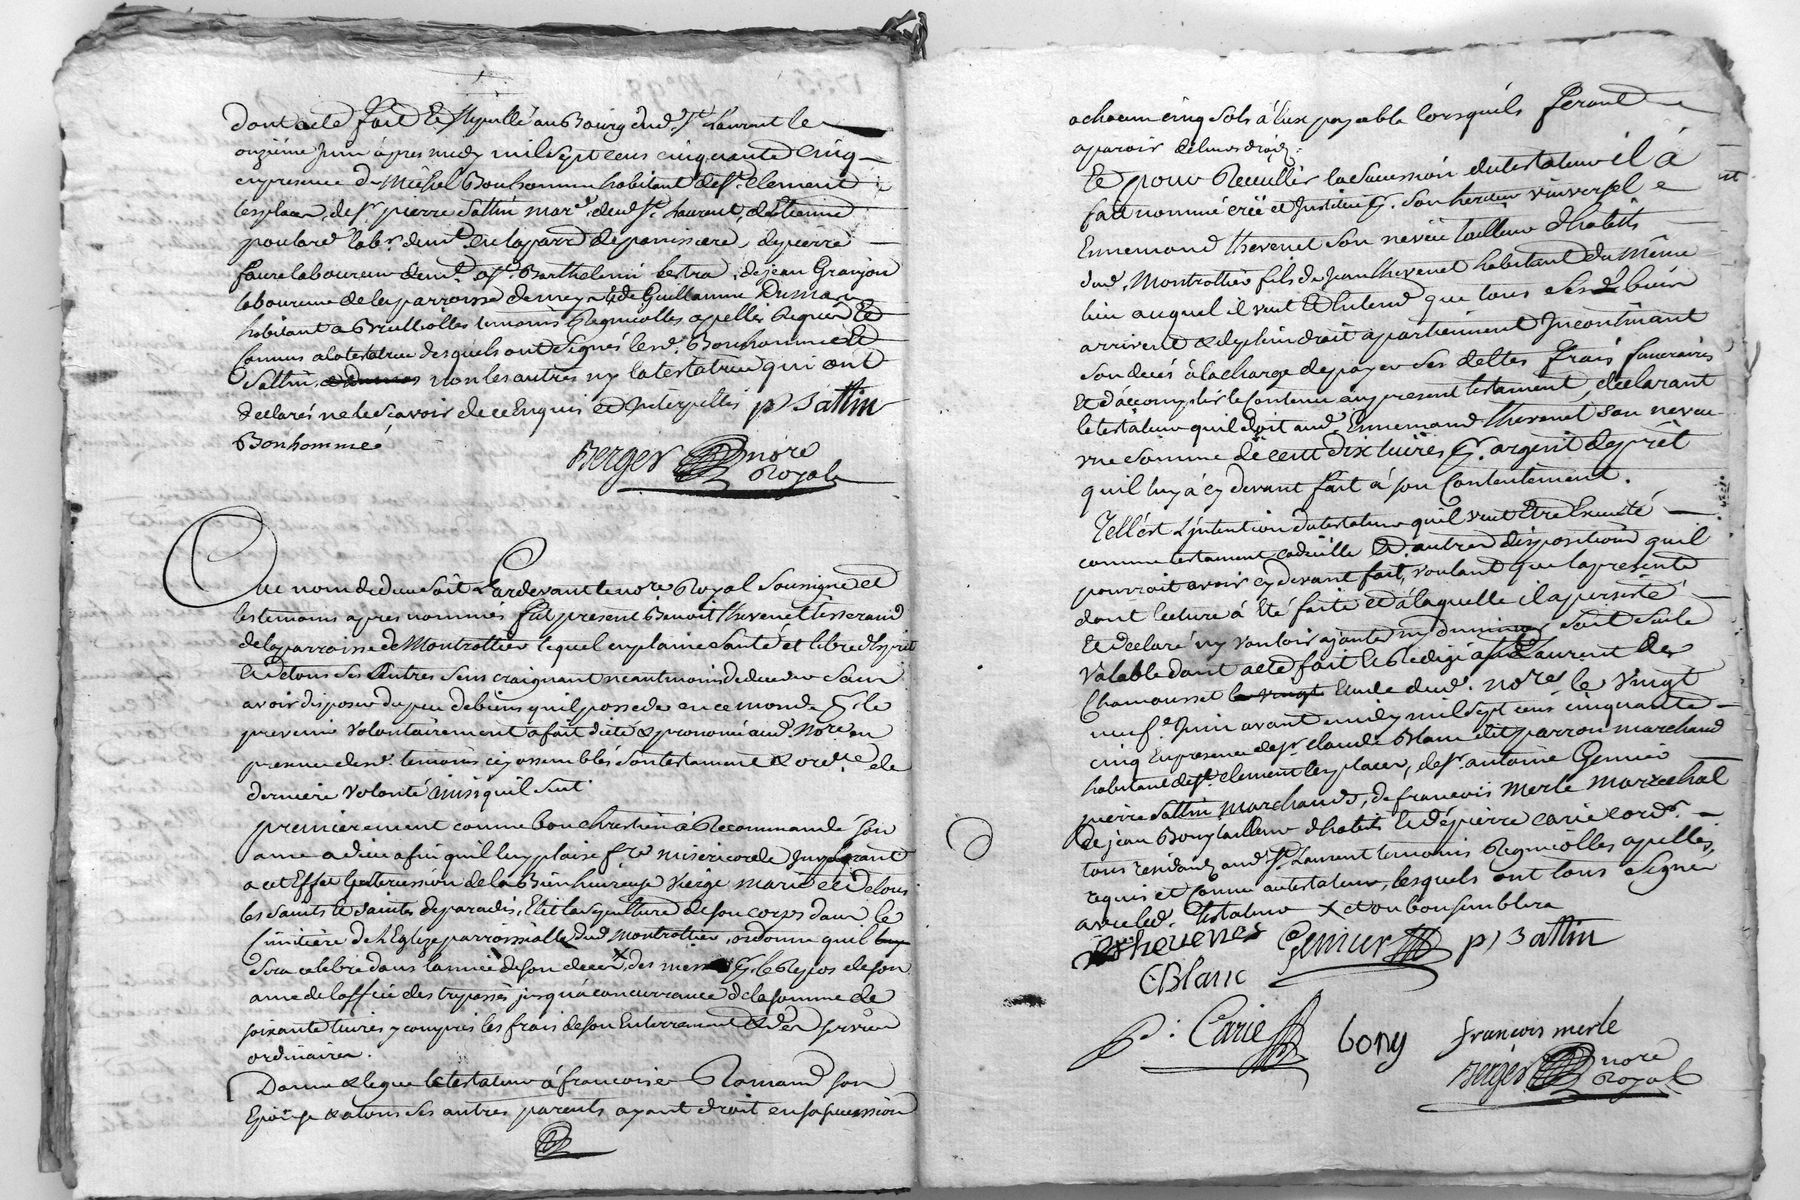 dont acte fait et stipullé au Bourg dud. St. Laurent le
onziéme Juin apres midy mil sept cens cinquante cinq
en presence de Michel Bonhomme habitant de St. Clement
les places, de Sr. pierre Sattin mard. dud. St. Laurent, d'Estienne
poulard labr. dem.t en la parr. de panissiere, de pierre
faure laboureur dem.t a St. Barthelemi lestra, de jean Granjon
laboureur de la parroisse de meys et de Guillaume Dumas
habitant a Brullioles temoins Regnicolles apellés Requis Et
Connus a la testatrice desquels ont signés led. Bonhomme et
Sattin non les autres ny la testatrice qui ont
declarés ne le sçavoir de ce Enquis et Interpellés p) Sattin
Bonhomme
Berger nore
Royal
Au nom de dieu soit Pardevant le nore Royal soussigné et
les temoins apres nommés fut present Benoit thevenet tisserand
de la parroisse de Montrottier lequel en plaine santé et libre d'esprit
Et de tous ses autres sens craignant neantmoins de deceder sans
avoir disposer du peu de biens qu'il possede en ce monde pr. le
prevenir volontairement a fait dicté & prononcé aud. Nore en
presence desd. temoins cy assemblés son testament & ordre. de
derniere volonté ainsi qu'il suit
premierement comme bon chrestien à Recommandé son
ame a dieu afin qu'il luy plaise fre. misericorde Implorant
a cet Effet l'intercession de la Bienheureuse vierge marie et de tous
les saints et saintes de paradis, Elit la sepulture de son corps dans le
Cimitière de l'Eglize parroissialle dud. Montrottier, ordonne qu'il
sera celebré dans l'année de son deces des messes pr. le Repos de son
ame de l'office des trepassés jusqu'à concurrance de la somme de
soixante livres y compris les frais de son Enterrement & des services
ordinaires.
Donne & legue le testateur à francoise Romand son
Epouse & a tous ses autres parents ayant droit en sa sucession
a chacun cinq sols à Eux payable lorsqu'ils feront
aparoir de leurs droits.
Et pour Recuillir la sucession du testateur il à
fait nommé créé et Institué pr. son heritier universel
Ennemond thevenet son neveu tailleur d'habits
dud. Montrottier fils de jean thevenet habitant du même
lieu auquel il veut Et Entend que tous ses d. biens
arrivent & de plein droit apartiennent Incontinant
son decés à la charge de payer ses dettes frais funeraires
Et d'accomplir le contenu au present testament, declarant
le testateur qu'il doit aud. Ennemond thevenet son neveu
une somme de cent dix livres pr. argent de prêt
qu'il luy à cy devant fait à son contentement.
Tell'est L'intention du testateur qu'il veut Etre Executé
comme testament codicille Et autres dispositions qu'il
pourroit avoir cy devant fait, voulant que la presente
dont lecture à Eté faite et à laquelle il a persisté
Et declaré n'y vouloir ajouter ny diminuer soit seule
valable dont acte fait Et Redigé a St. Laurent de
Chamousset Etude dud. nore. le vingt
neufe. Juin avant midy mil sept cens cinquante
cinq En presence de Sr. claude Blanc dit parrou marchand
habitant de St. clement les places, de Sr. antoine Genier
pierre Sattin marchands, de francois Merle marrechal
de jean Bony tailleur d'habits et de pierre carie cordr.
tous residants aud. St. Laurent temoins Regnicolles apellés,
requis et connu au testateur, lesquels ont tous signer
avec led. testateur
B thevenet Genier p) Sattin
CBlanc
P: Carie bony françois merle
Berger nore
Royal